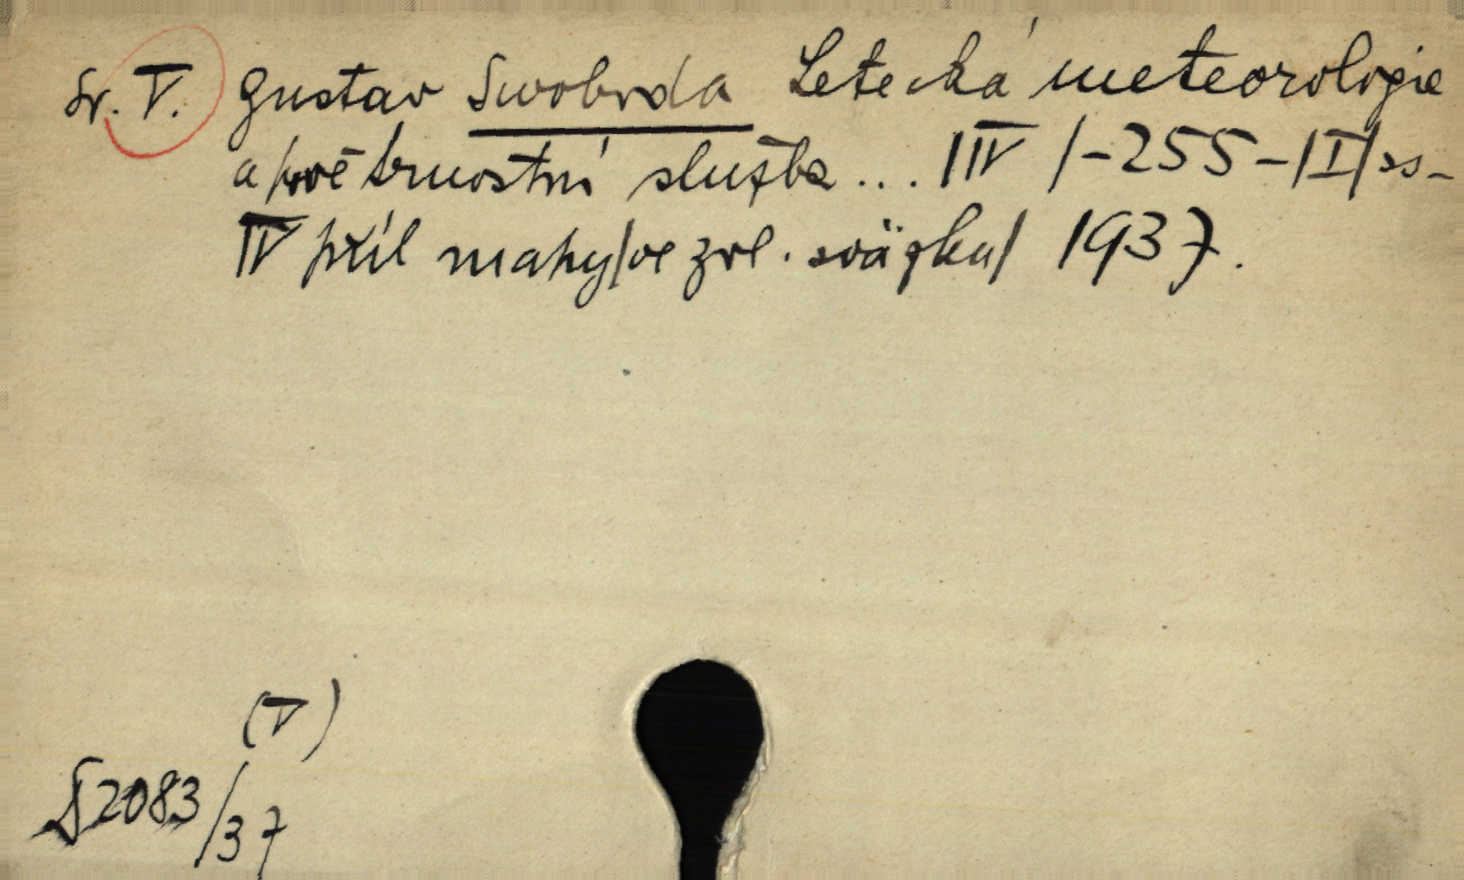 Sv. V. Gustav Swoboda Letecká meteorologie
a povětrnostní služba ... /IV/-255-/I/ ss-
IV příl mapy/ve zvl. sväzku/ 1937.
(V)
§2083/37